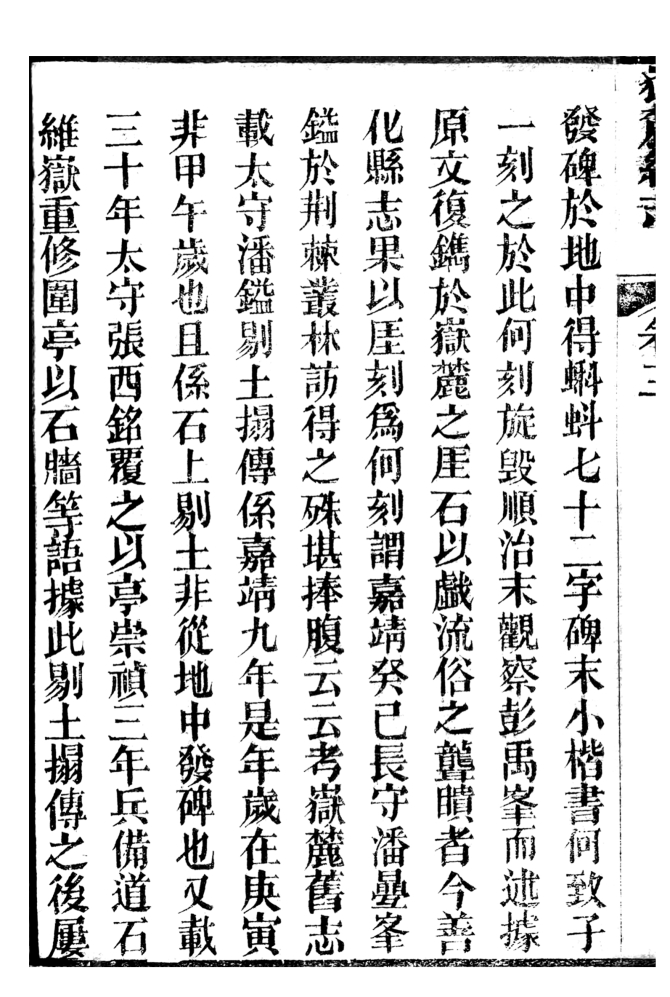 發碑於地中得蝌蚪七十二字碑末小楷書何致子
一刻之於此何刻旋毀順治末觀察彭禹峯而述據
原文復鐫於嶽麓之厓石以戯流俗之聾瞶者今善
化縣志果以厓刻爲何刻謂嘉靖癸巳長守潘曡峯
鎰於荆棘叢林訪得之殊堪捧腹云云考嶽麓舊志
載太守潘鎰剔土搨傳係嘉靖九年是年歲在庚寅
非甲午歲也且係石上剔土非從地中發碑也又載
三十年太守張西銘覆之以亭崇禎三年兵備道石
維嶽重修圍亭以石牆等語據此剔土搨傳之後屢